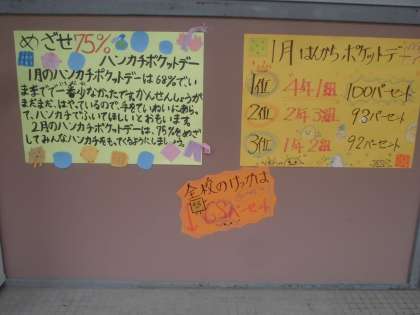 めざせ75%
ハンカチポケットデー
1月のハンカチポケットデーは68%でい
ままでで一番少なかったです。かんせんしょうが
まだまだ、はやっているので、手をていねいにあらっ
て、ハンカチでふいてほしいとおもいます。
2月のハンカチポケットデーは、75%をめざ
してみんなハンカチをもってくるようにしましょう。
1月はんかちポケットデー
1位 4年1組 100パーセート
2位 2年3組 93パーセート
3位 1年2組 92パーセート
全校のけっかは
68パーセート